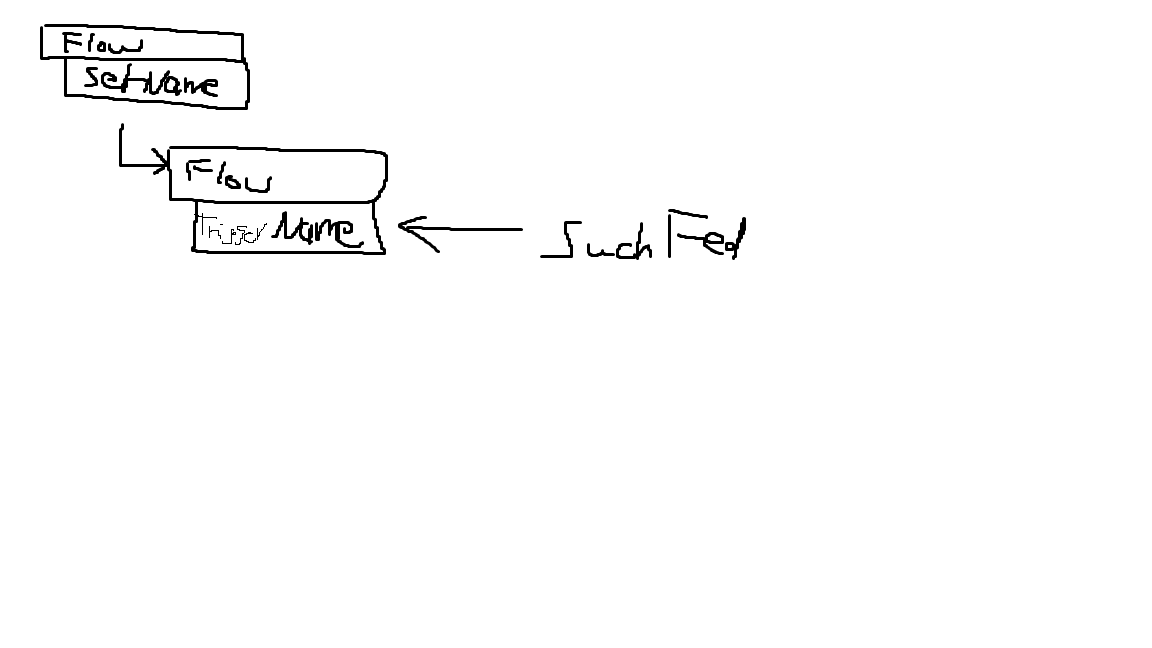 Flow
setName
Flow
Trigger Name
SuchFed